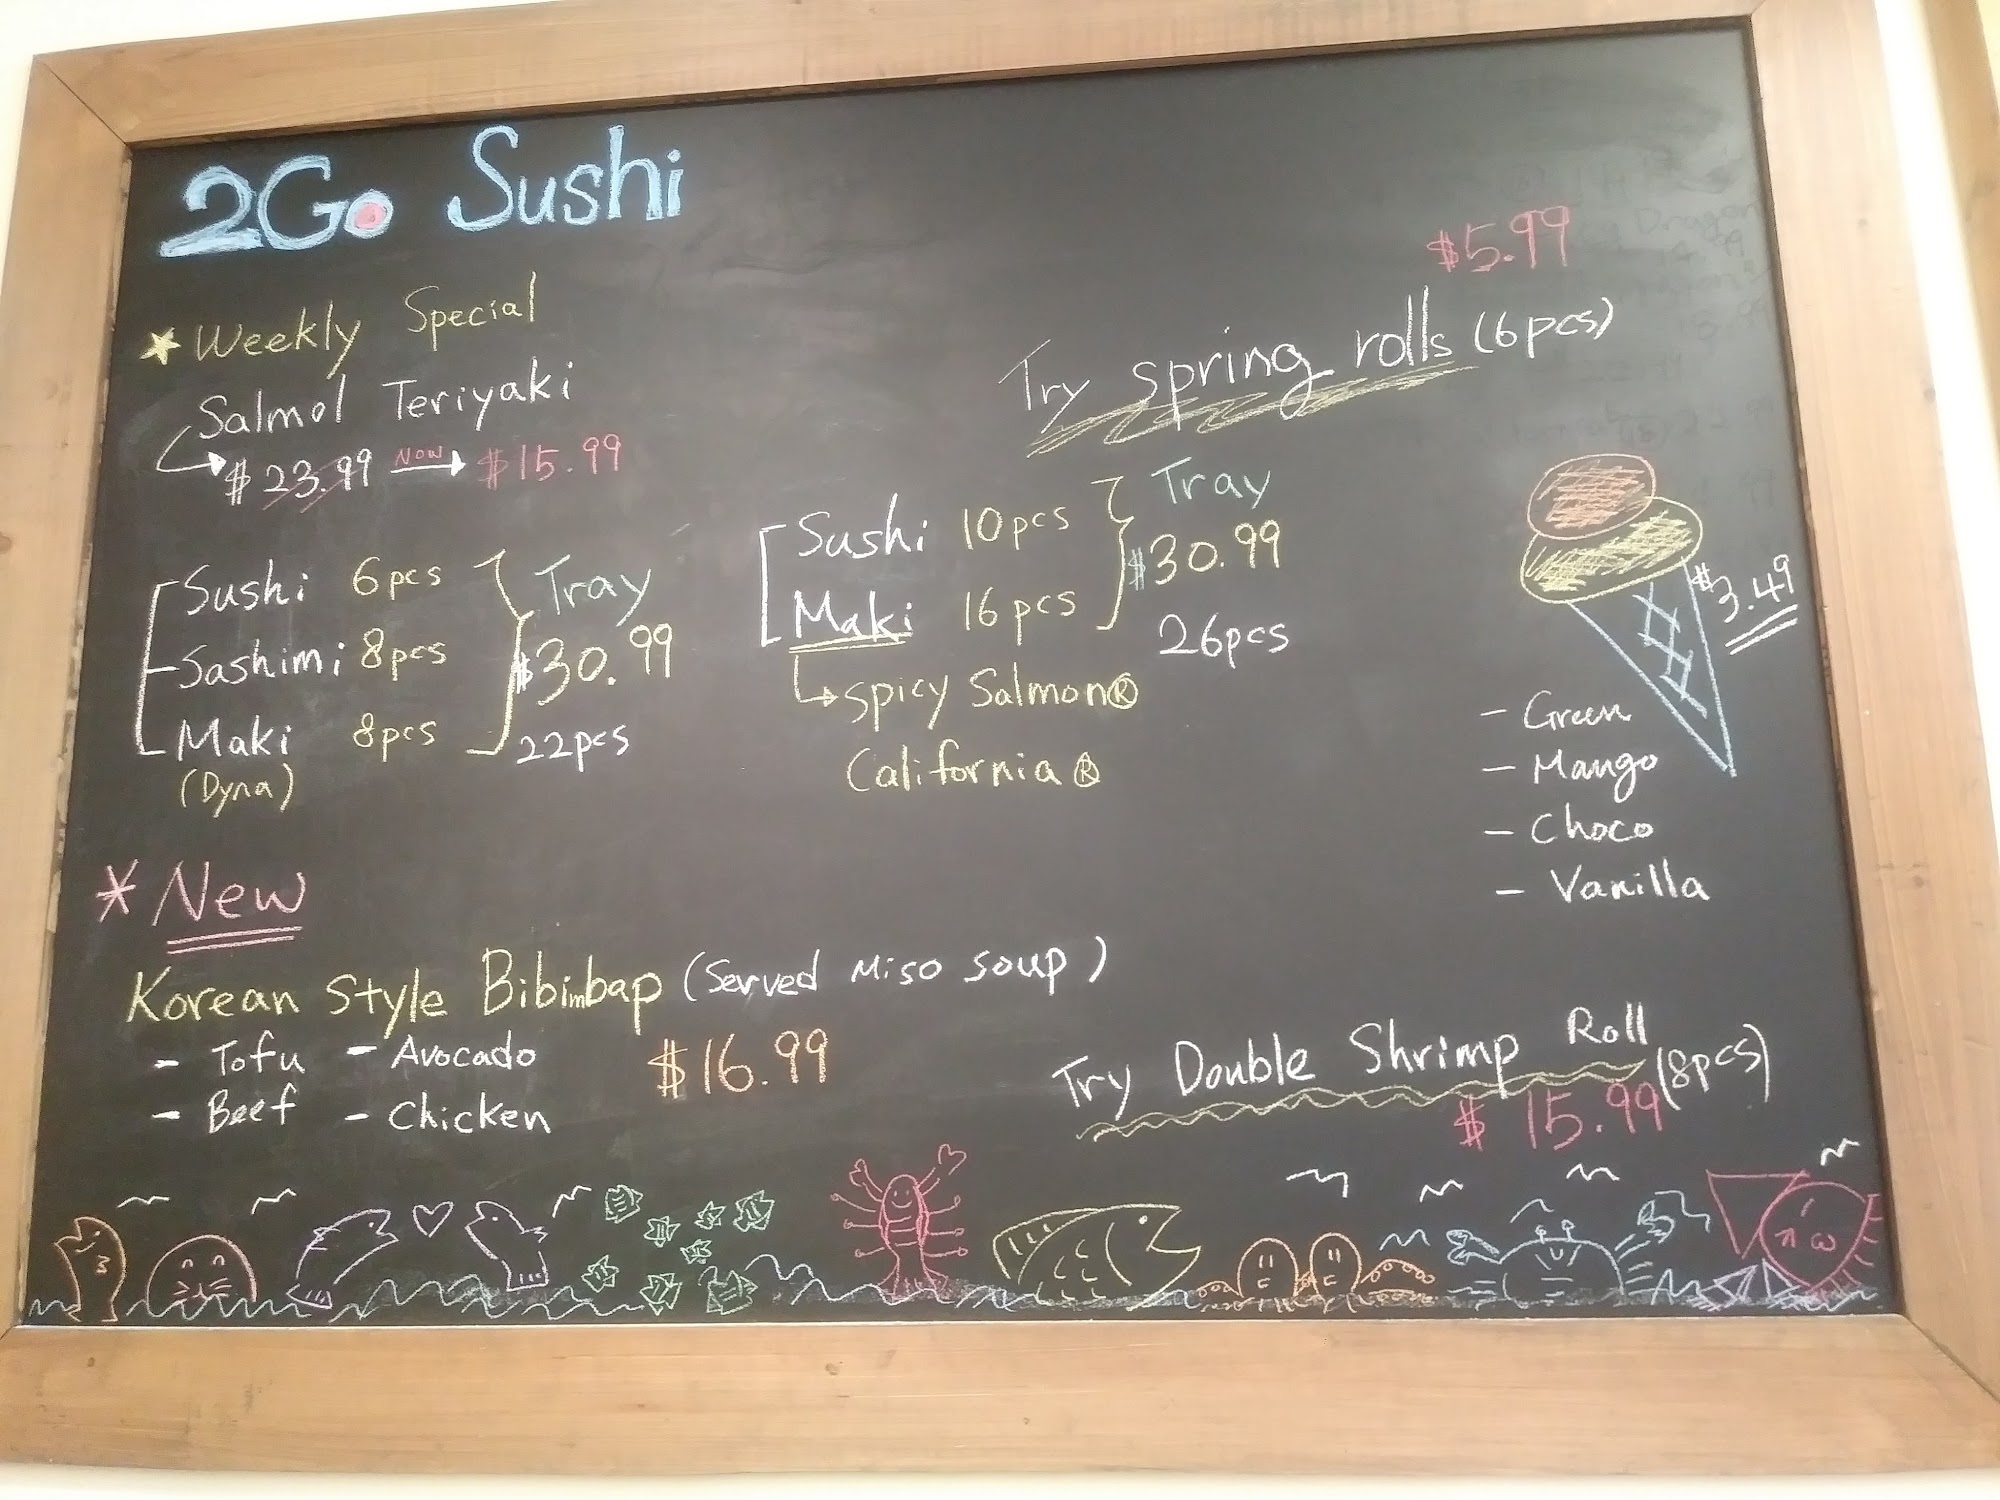 2Go Sushi
Weekly Special
Salmol Teriyaki
$23.99 NOW $15.99
Sushi 6pcs
Sashimi 8pcs
Maki 8pcs
(Dyna)
Tray
$30.99
22pcs
$5.99
Try spring rolls (6pcs)
Sushi 10pcs
Maki 16pcs
Tray
$30.99
26pcs
spicy Salmon Ⓡ
California Ⓡ
$3.49
- Green
- Mango
- Choco
- Vanilla
* New
Korean Style Bibimbap (Served Miso soup)
- Tofu - Avocado
- Beef - Chicken
$16.99
Try Double Shrimp Roll
(8pcs)
$15.99